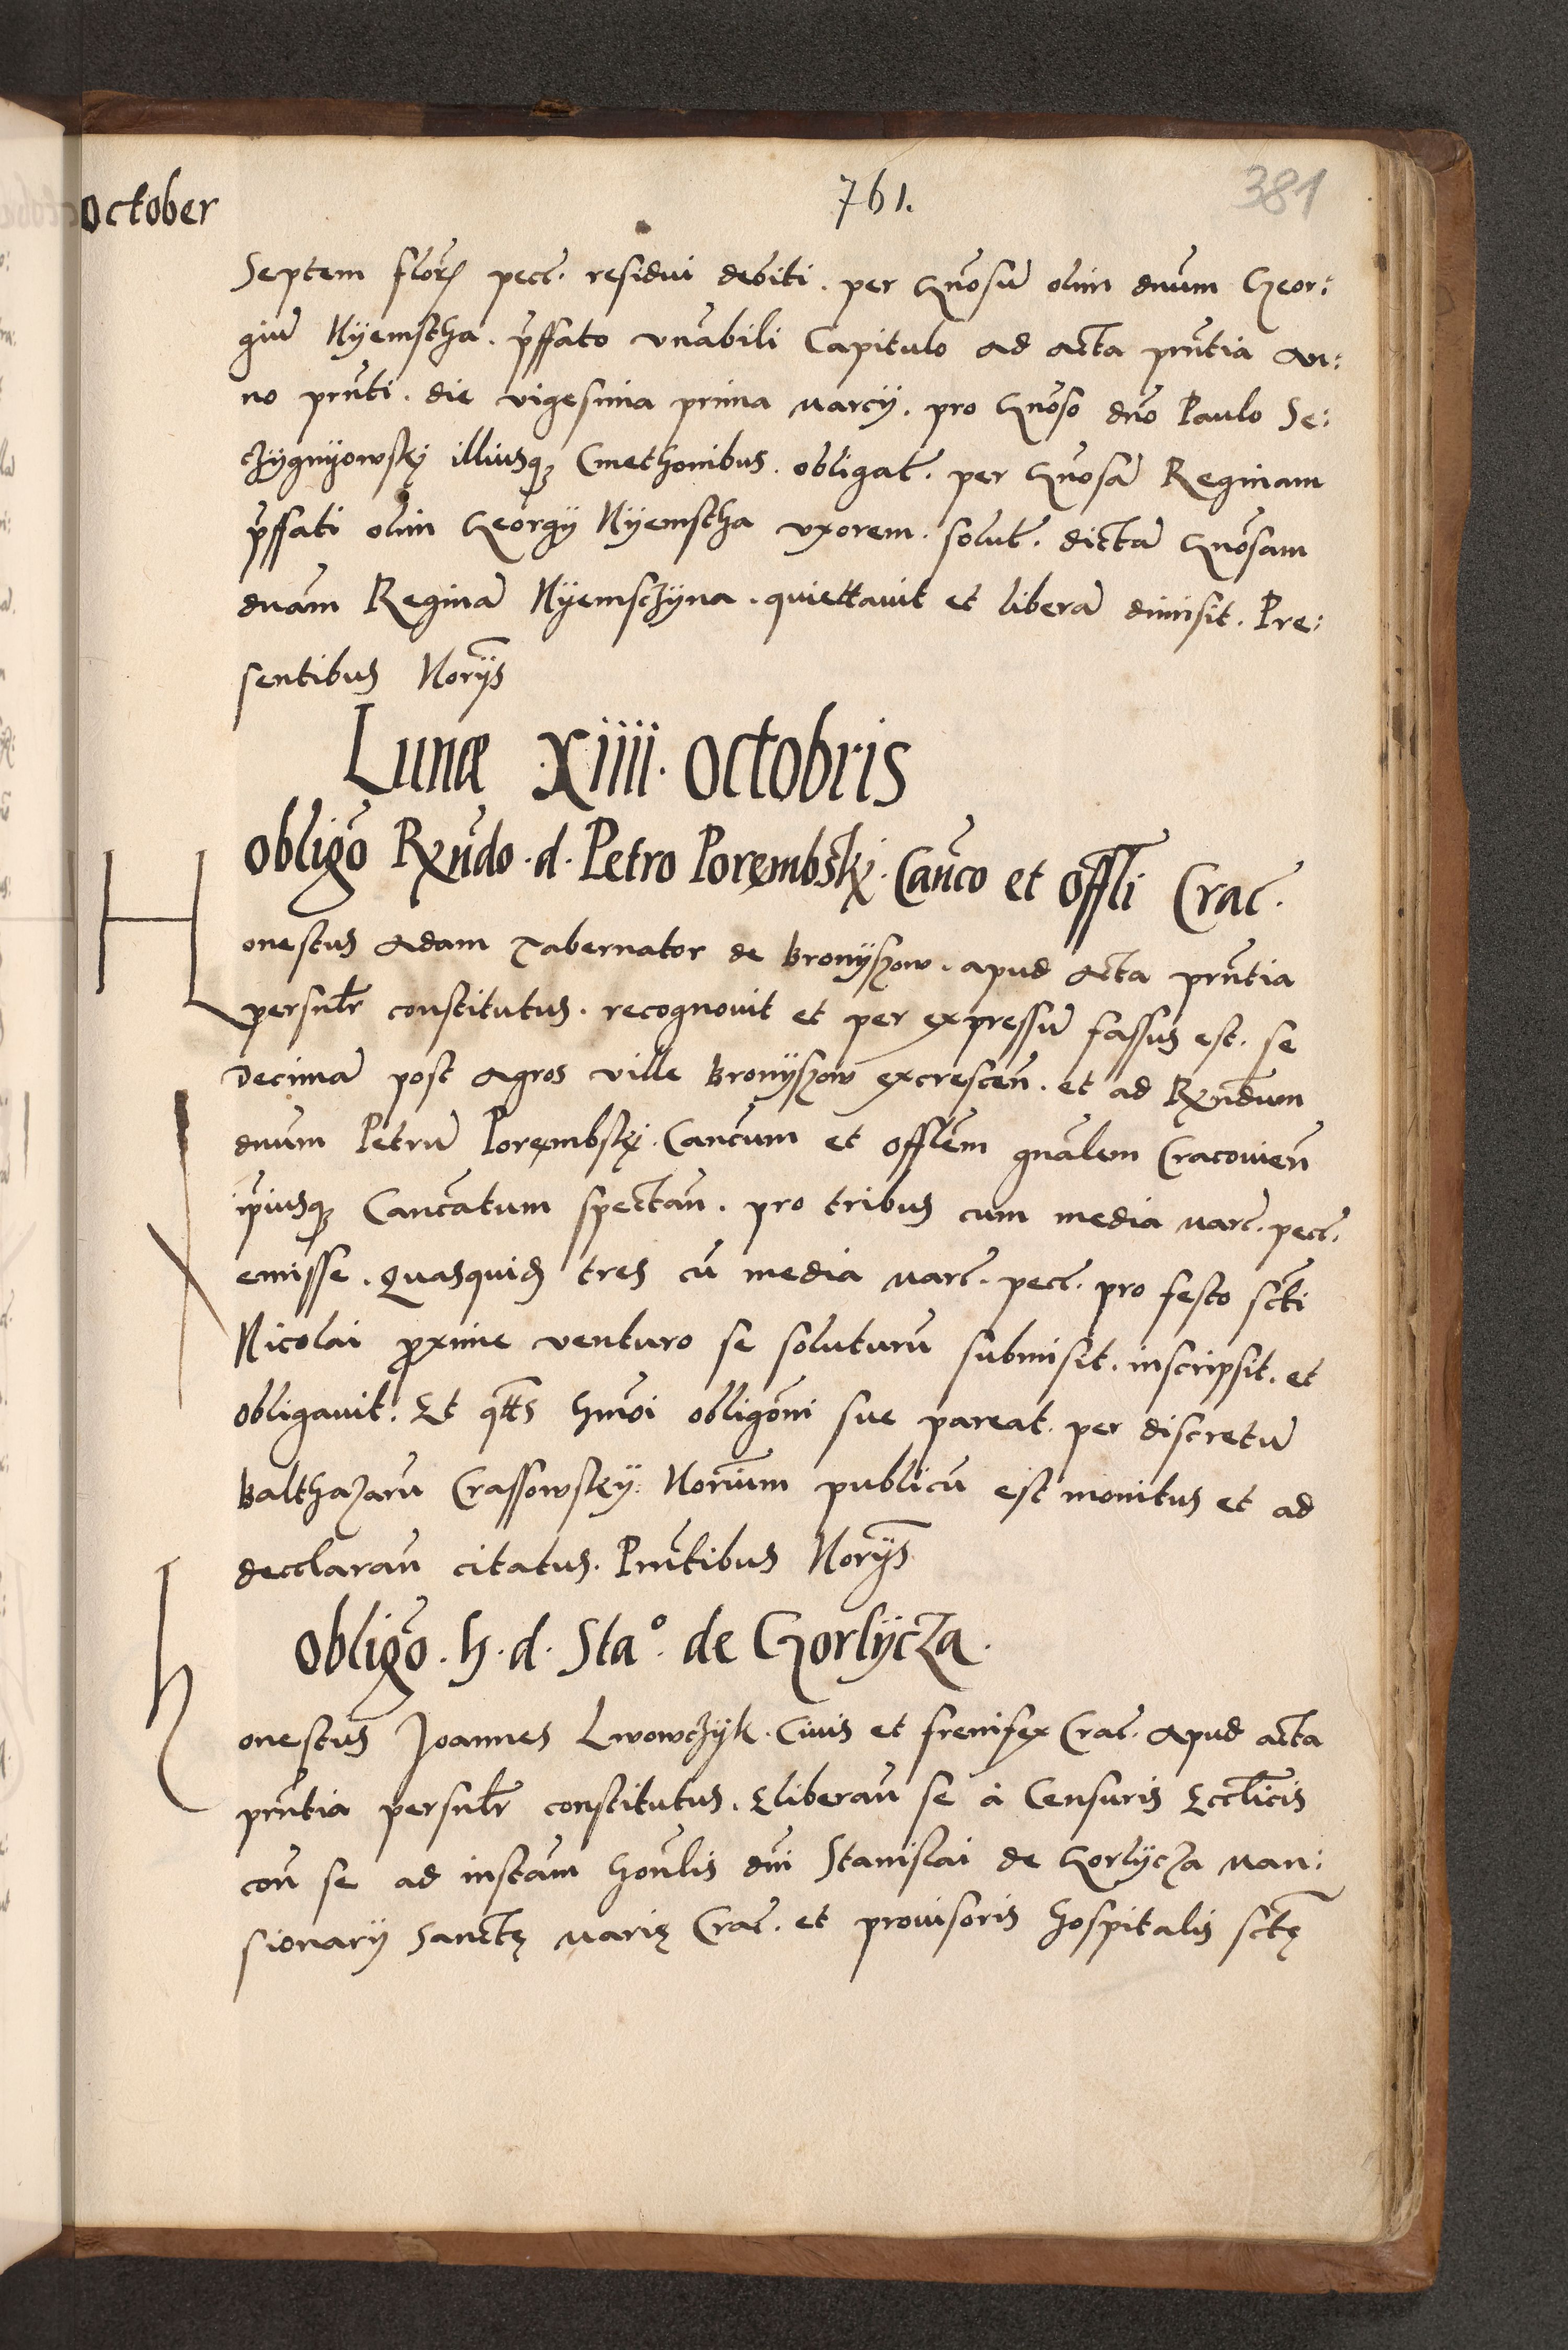 October
761.
381
Septem floẽ pecĉ. residui debiti. per Gñosũ olim dnũm Geor:
giũ Nÿemstha. p̃ffato vñabili Capitulo ad acta prñtia an:
no prñti. die vigesima prima marcÿ. pro Gñoso dño Paulo Se:
czÿgnÿowskj illiusq; Cmethonibus. obligat̃. per Gñosã Reginam
p̃ffati olim Georgÿ Nÿemstha vxorem. solut̃. dictã Gñosam
dnãm Reginã Nÿemsczÿna. quiettavit et liberã dimisit. Pre:
sentibus Norÿs̃
Lunæ xiiii. Octobris
Obligõ Rxñdo. d. Petro Porembskj. Cañco et Offl̃i Crac̃.
Honestus Adam Tabernator de Bronÿszow. apud acta prñtia
persnl̃r constitutus. recognouit et per expressũ fassus est. se
Decimã post agros ville Bronÿszow excrescen̄. et ad Rxñdum
dnũm Petrũ Porembskj. Canc̃um et offlẽm gnãlem Cracouien̄
ip̃iusq; Canc̃atum spectan̄. pro tribus cum media marc̃. pecĉ.
emisse. Quasquid; tres cũ media marc̃. pecĉ. pro festo scti
Nicolai proxime venturo se soluturũ submisit. inscripsit. et
obligauit. Et qtt̃s hm̃oi obligõni sue pareat. per discretũ
Balthazarũ Crassowskÿ. Norĩum publicũ est monitus et ad
decclaran̄ citatus. Prñtibus Norÿs̃
Obligõ. h. d. Staº. de Gorlÿcza.
honestus Joannes Lwowczÿk. Ciuis et frenifex Crac̃. apud acta
prñtia persnl̃r constitutus. Eliberan̄ se à Censuris Eccl̃icis
con̄ se ad instãm honl̃is dñi Stanislai de Gorlÿcza man:
sionarÿ Sanctę marię Crac̃. et prouisoris hospitalis sctę